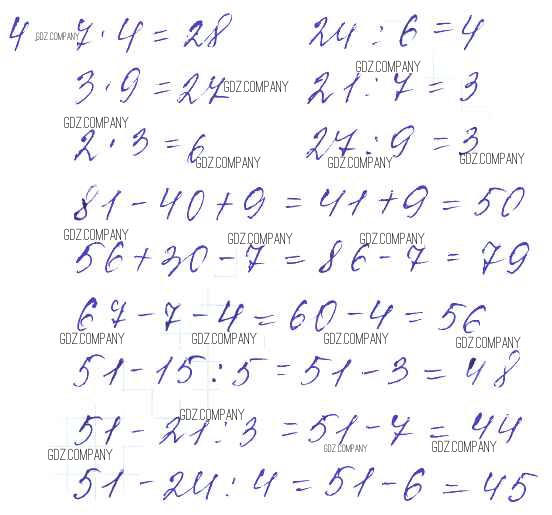 4 GDZ.COMPANY 7 · 4 = 28 24 : 6 = 4
GDZ.COMPANY
3 · 9 = 27 GDZ.COMPANY 21 : 7 = 3
GDZ.COMPANY
2 · 3 = 6 27 : 9 = 3
GDZ.COMPANY GDZ.COMPANY GDZ.COMPANY
81 - 40 + 9 = 41 + 9 = 50
GDZ.COMPANY GDZ.COMPANY GDZ.COMPANY
56 + 30 - 7 = 86 - 7 = 79
67 - 7 - 4 = 60 - 4 = 56
GDZ.COMPANY GDZ.COMPANY GDZ.COMPANY GDZ.COMPANY
51 - 15 : 5 = 51 - 3 = 48
GDZ.COMPANY
51 - 21 : 3 = 51 - 7 = 44
GDZ.COMPANY GDZ.COMPANY GDZ.COMPANY
51 - 24 : 4 = 51 - 6 = 45